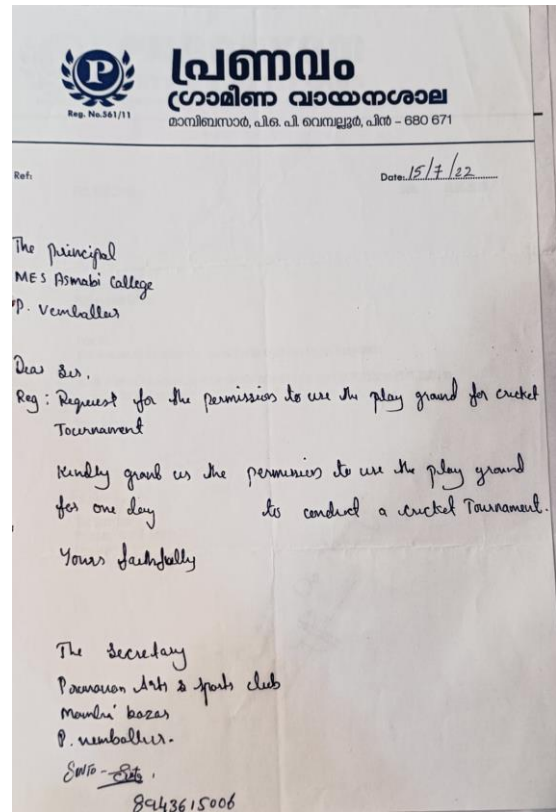 P
Reg. No.361/11
പ്രണവം
ഗ്രാമീണ വായനശാല
മാമ്പിബസാർ, പി.ഒ. പി. വെമ്പല്ലൂർ, പിൻ – 680 671
Ref:
Date: 15/7/22
The principal
MES Asmabi College
P. Vemballur
Dear Sir,
Reg : Request for the permission to use the play ground for cricket
Tournament
Kindly grant us the permission to use the play ground
for one day to conduct a cricket Tournament.
Yours faithfully
The Secretary
Arts & sports club
bazar
P.
SINTO -
8943615006